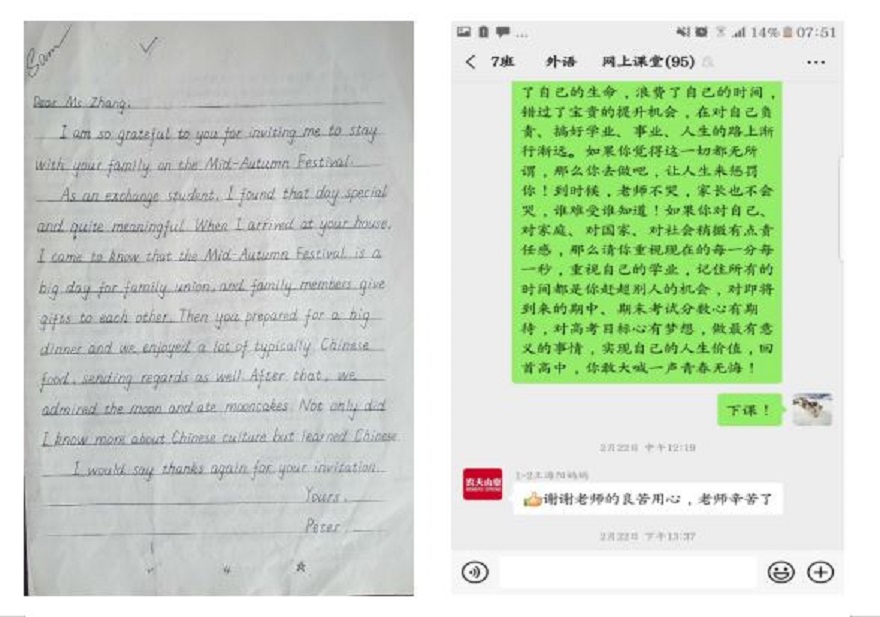 Sam
Dear Ms Zhang,
I am so grateful to you for inviting me to stay
with your family on the Mid-Autumn Festival.
As an exchange student, I found that day special
and quite meaningful. When I arrived at your house,
I came to know that the Mid-Autumn Festival is a
big day for family union, and family members give
gifts to each other. Then you prepared for a big
dinner and we enjoyed a lot of typically Chinese
food, sending regards as well. After that, we
admired the moon and ate mooncakes. Not only did
I know more about Chinese culture but learned Chinese.
I would say thanks again for your invitation.
Yours,
Peter
14% 07:51
7班 外语 网上课堂(95)
了自己的生命，浪费了自己的时间，
错过了宝贵的提升机会，在对自己负
责、搞好学业、事业、人生的路上渐
行渐远。如果你觉得这一切都无所
谓，那么你去做吧，让人生来惩罚
你！到时候，老师不哭，家长也不会
哭，谁难受谁知道！如果你对自己、
对家庭、对国家、对社会稍微有点责
任感，那么请你重视现在的每一分每
一秒，重视自己的学业，记住所有的
时间都是你赶超别人的机会，对即将
到来的期中、期末考试分数心有期
待，对高考目标心有梦想，做最有意
义的事情，实现自己的人生价值，回
首高中，你敢大喊一声青春无悔！
下课！
2月22日 中午12:19
农夫山泉
谢谢老师的良苦用心，老师辛苦了
2月22日 下午13:37